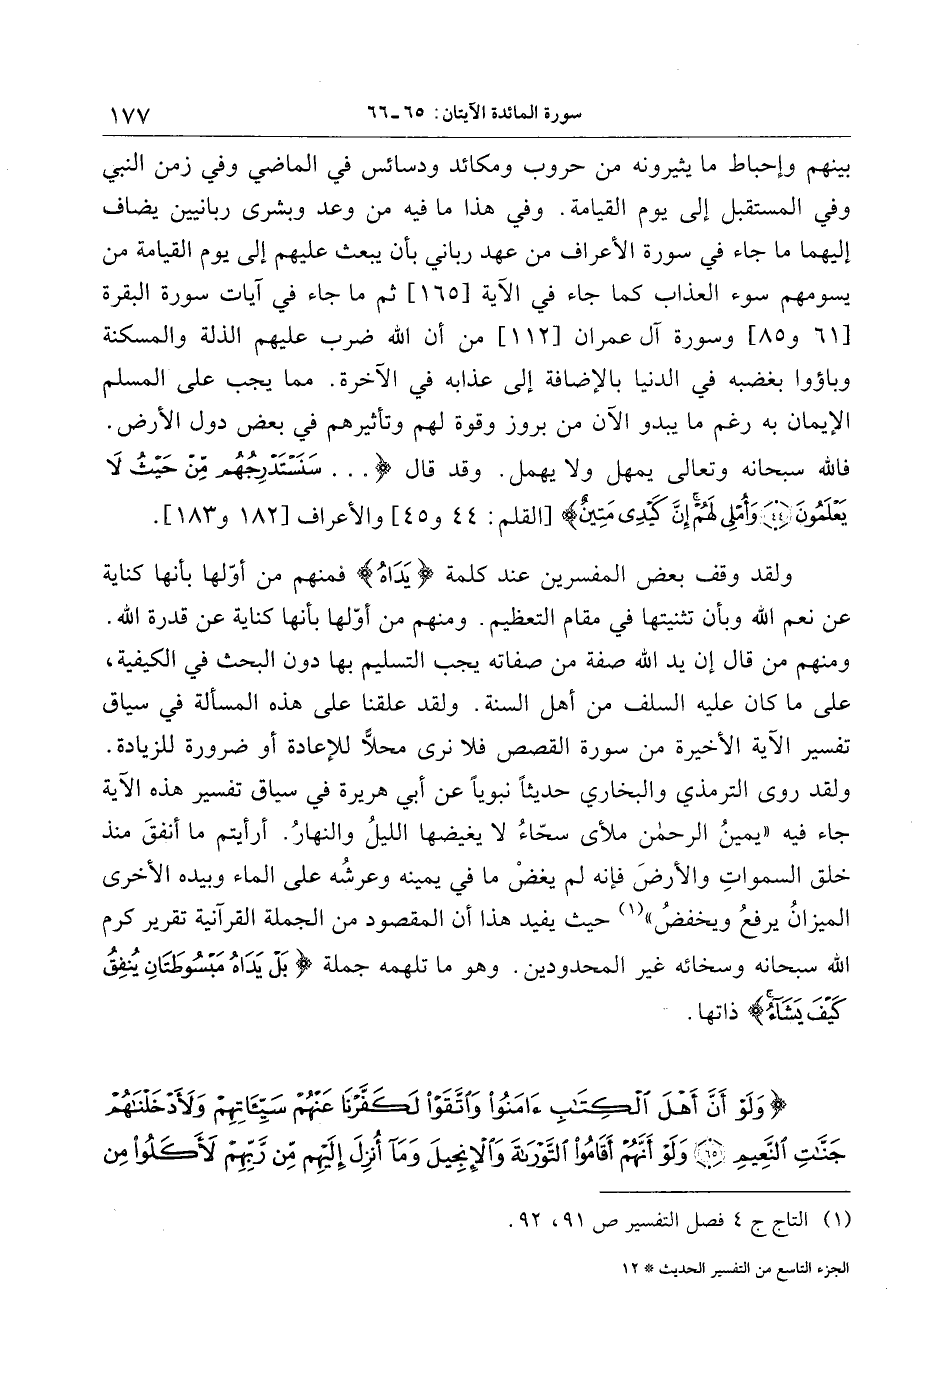 سورة المائدة الآيتان: ٦٥ ـ ٦٦ ١٧٧
بينهم وإحباط ما يثيرونه من حروب ومكائد ودسائس في الماضي وفي زمن النبي
وفي المستقبل إلى يوم القيامة. وفي هذا ما فيه من وعد وبشرى ربانيين يضاف
إليهما ما جاء في سورة الأعراف من عهد رباني بأن يبعث عليهم إلى يوم القيامة من
يسومهم سوء العذاب كما جاء في الآية [١٦٥] ثم ما جاء في آيات سورة البقرة
[٦١ و٨٥] وسورة آل عمران [١١٢] من أن الله ضرب عليهم الذلة والمسكنة
وباؤوا بغضبه في الدنيا بالإضافة إلى عذابه في الآخرة. مما يجب على المسلم
الإيمان به رغم ما يبدو الآن من بروز وقوة لهم وتأثيرهم في بعض دول الأرض.
فالله سبحانه وتعالى يمهل ولا يهمل. وقد قال ﴿. . . سَنَسْتَدْرِجُهُم مِّنْ حَيْثُ لَا
يَعْلَمُونَ ٤٤ وَأُمْلِي لَهُمْ إِنَّ كَيْدِي مَتِينٌ﴾ [القلم: ٤٤ و٤٥] والأعراف [١٨٢ و١٨٣].
ولقد وقف بعض المفسرين عند كلمة ﴿يَدَاهُ﴾ فمنهم من أوّلها بأنها كناية
عن نعم الله وبأن تثنيتها في مقام التعظيم. ومنهم من أوّلها بأنها كناية عن قدرة الله.
ومنهم من قال إن يد الله صفة من صفاته يجب التسليم بها دون البحث في الكيفية،
على ما كان عليه السلف من أهل السنة. ولقد علقنا على هذه المسألة في سياق
تفسير الآية الأخيرة من سورة القصص فلا نرى محلاً للإعادة أو ضرورة للزيادة.
ولقد روى الترمذي والبخاري حديثاً نبوياً عن أبي هريرة في سياق تفسير هذه الآية
جاء فيه «يمينُ الرحمٰن ملأى سحّاءُ لا يغيضها الليلُ والنهارُ. أرأيتم ما أنفقَ منذ
خلق السمواتِ والأرضَ فإنه لم يغضْ ما في يمينه وعرشُه على الماء وبيده الأخرى
الميزانُ يرفعُ ويخفضُ»(١) حيث يفيد هذا أن المقصود من الجملة القرآنية تقرير كرم
الله سبحانه وسخائه غير المحدودين. وهو ما تلهمه جملة ﴿بَلْ يَدَاهُ مَبْسُوطَتَانِ يُنفِقُ
كَيْفَ يَشَآءُ﴾ ذاتها.
﴿وَلَوْ أَنَّ أَهْلَ ٱلْكِتَٰبِ ءَامَنُوا۟ وَٱتَّقَوْا۟ لَكَفَّرْنَا عَنْهُمْ سَيِّـَٔاتِهِمْ وَلَأَدْخَلْنَٰهُمْ
جَنَّٰتِ ٱلنَّعِيمِ ٦٥ وَلَوْ أَنَّهُمْ أَقَامُوا۟ ٱلتَّوْرَىٰةَ وَٱلْإِنجِيلَ وَمَآ أُنزِلَ إِلَيْهِم مِّن رَّبِّهِمْ لَأَكَلُوا۟ مِن
(١) التاج ج ٤ فصل التفسير ص ٩١، ٩٢.
الجزء التاسع من التفسير الحديث * ١٢